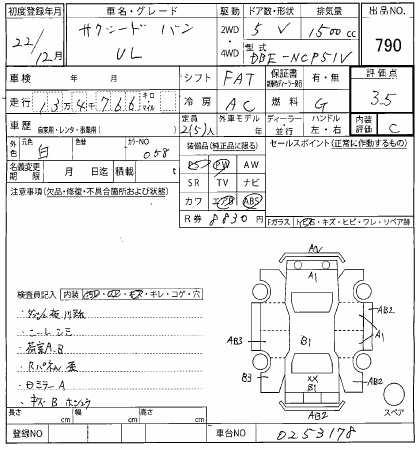 初度登録年月 車名・グレード 駆動 ドア数・形状 排気量 出品NO.
22/12月 サクシード バン UL 2WD・4WD 5 V 1500cc 790
型式 DBE-NCP51V
車検 年 月 シフト FAT 保証書 有・無 評価点 3.5
走行 13万4千766 キロ マイル 冷房 AC 燃料 G
車歴 自家用・レンタ・事業用( ) 定員 2(5)人 外車モデル 年 ディーラー・並行 ハンドル 左・右 内装評価 C
外色 元色 白 色替 カラーNO 058 装備品(純正品に限る) セールスポイント(正常に作動するもの)
名義変更期限 月 日迄 積載 t PS PW AW
SR TV ナビ
注意事項(欠品・修復・不具合箇所および状態) カワ エアB ABS
R券 8830円
Fガラス トビ石・キズ・ヒビ・ワレ・リペア跡
検査員記入 内装 キレ・コゲ・穴
荷室A.B
Rパネル歪
ミラーA
A1
AB2
A1
AB3
B1
B3
XX
B1
AB2
AB2
スペア
長さ cm 幅 cm 高さ cm
登録NO 車台NO 0253178